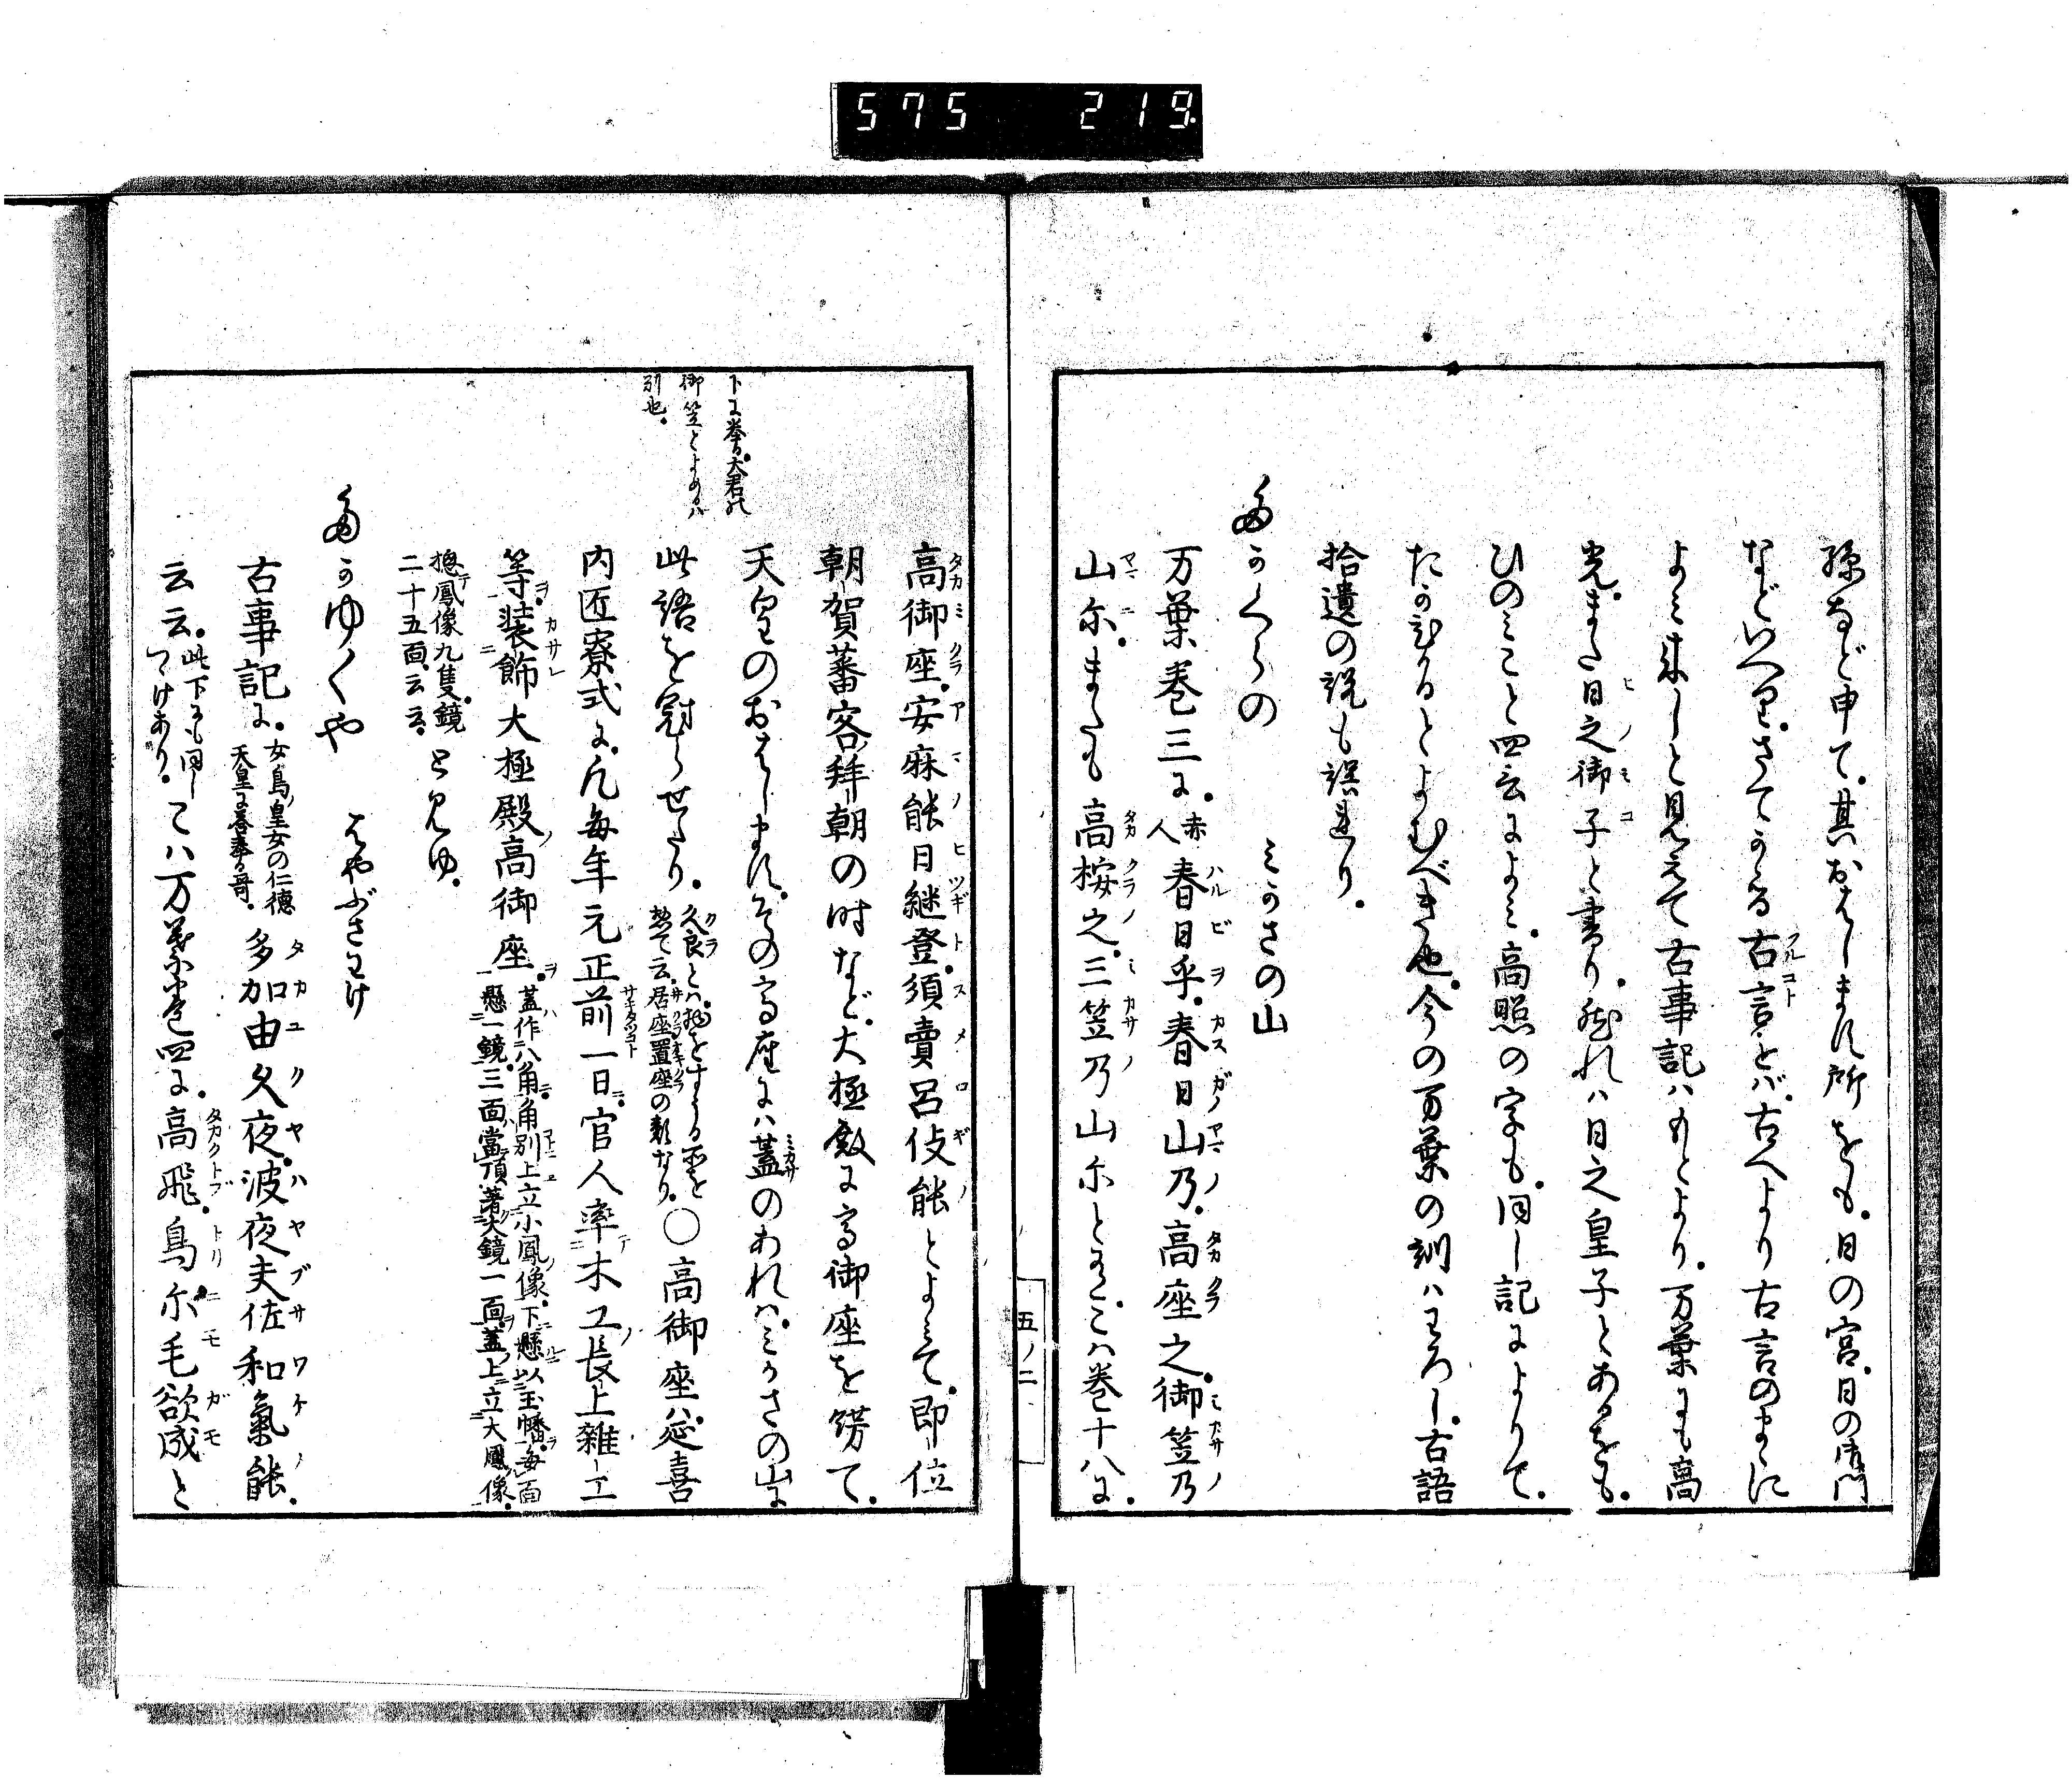 575 219
孫など申て。其おはします所をも。日の宮。日の御門
などいへり。さてかゝる古言をば。古へより古言のまゝに
よみ来しと見えて古事記ハもとより。万葉にも高
光。また日之御子と書り。然れハ日之皇子とあるをも。
ひのみこと四言によみ。高照の字も。同し記によりて。
たかひかるとよむべき也。今の万葉の訓ハわろし。古語
拾遺の説も誤れり。
たかくらの　みかさの山
万葉巻三に。赤人春日乎。春日山乃。高座之御笠乃
山尓。またも高桉之。三笠乃山尓とあり。こハ巻十八に。
五ノ二
高御座。安麻能日継登。須賣呂伎能とよみて。即位
朝賀蕃客拜朝の時など。大極殿に高御座を餝て。
天皇のおはします。その高座にハ蓋のあれハ。みかさの山に
此語を冠らせたり。久良とハ。物をすうる所を
惣て云。居座置座の類なり。〇高御座ハ。延喜
内匠寮式に。凡毎年元正前一日。官人率木工長上雜工
等。装飾大極殿高御座。蓋作八角。角別上立小鳳像。下懸以玉幡。毎面
懸一鏡。三面當頂著大鏡一面。蓋上立大鳳像。
惣鳳像九隻。鏡
二十五面。云云。と見ゆ。
下に挙る大君の
御笠とよめるハ
別也。
たかゆくや　はやぶさわけ
古事記に。女鳥皇女の仁徳
天皇に答奉る哥。多加由久夜。波夜夫佐和氣能。
云云。此下にも同し
つゝけあり。こハ万葉巻四に。高飛。鳥尓毛欲成と